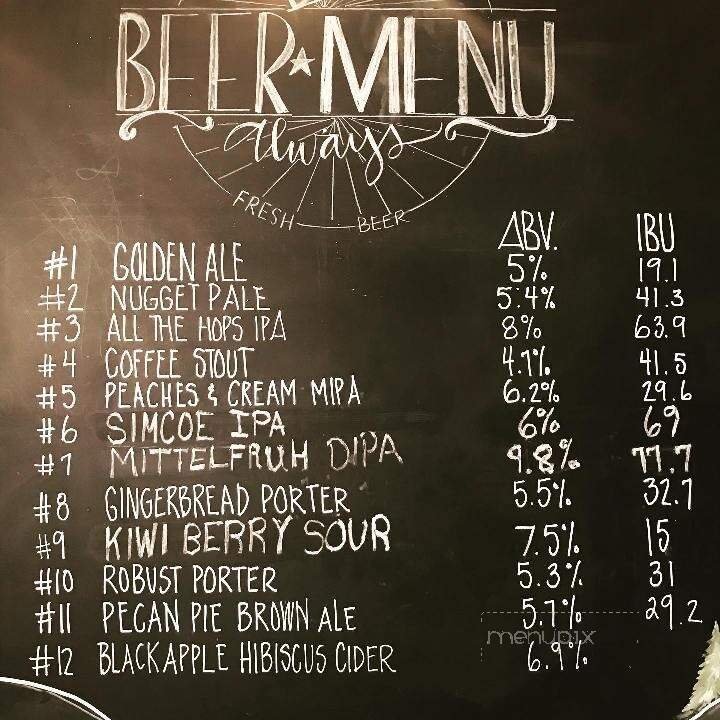 BEER ★ MENU
Always
FRESH BEER
ABV. IBU
#1 GOLDEN ALE 5% 19.1
#2 NUGGET PALE 5.4% 41.3
#3 ALL THE HOPS IPA 8% 63.9
#4 COFFEE STOUT 4.7% 41.5
#5 PEACHES & CREAM MIPA 6.2% 29.6
#6 SIMCOE IPA 6% 69
#7 MITTELFRUH DIPA 9.8% 77.7
#8 GINGERBREAD PORTER 5.5% 32.7
#9 KIWI BERRY SOUR 7.5% 15
#10 ROBUST PORTER 5.3% 31
#11 PECAN PIE BROWN ALE 5.7% 29.2
menupix
#12 BLACKAPPLE HIBISCUS CIDER 6.9%